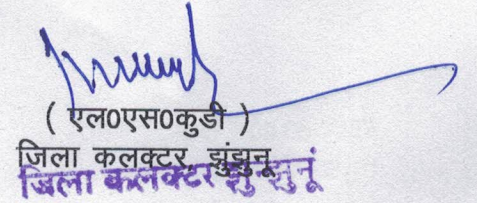 ( एल०एस०कुडी )
जिला कलक्टर, झुंझुनू
जिला कलक्टर झुन्झुनूं